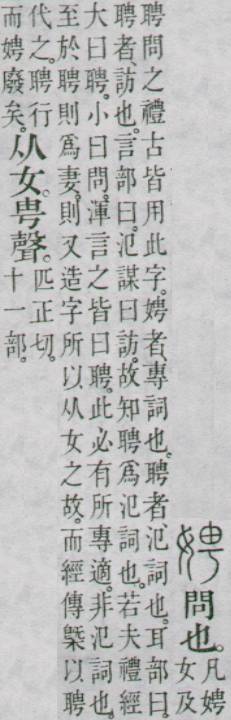 娉問也。凡娉
女及
聘問之禮古皆用此字。娉者、專詞也。聘者、氾詞也。耳部曰。
聘者、訪也。言部曰。氾謀曰訪。故知聘爲氾詞也。若夫禮經
大曰聘。小曰問。渾言之皆曰聘。此必有所專適。非氾詞也。
至於聘則爲妻。則又造字所以从女之故。而經傳槩以聘
代之。聘行
而娉廢矣。
从女。甹聲。
匹正切。
十一部。